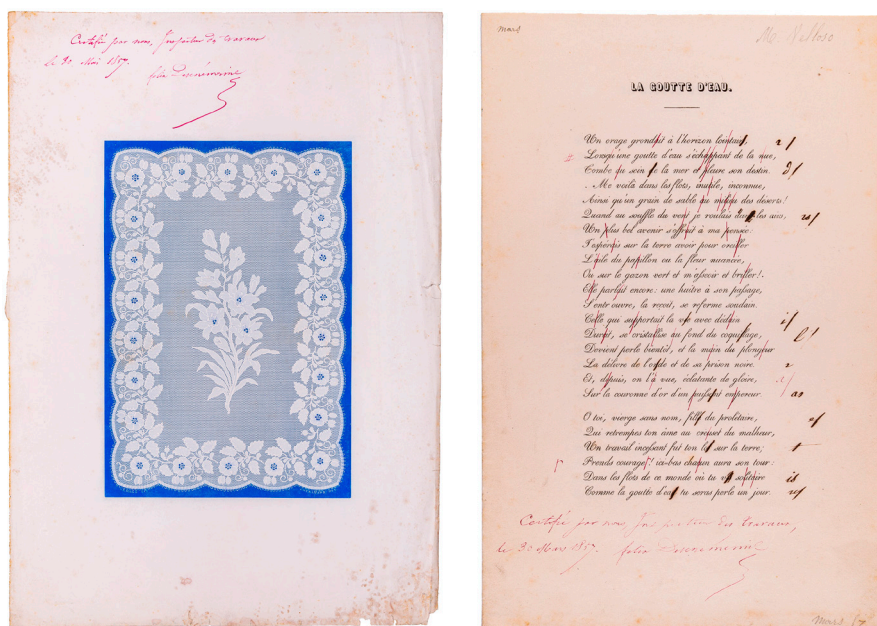 Certifié par nous, Inspecteur des travaux
le 30 Mai 1857.
mars
M. Velloso
LA GOUTTE D'EAU.
Un orage grondait à l'horizon lointain,
Lorsqu'une goutte d'eau s'échappant de la nue,
Tombe au sein de la mer et pleure son destin.
. Me voilà dans les flots, inutile, inconnue,
Ainsi qu'un grain de sable au milieu des déserts!
Quand au souffle du vent je roulais dans les airs,
Un plus bel avenir s'offrait à ma pensée:
J'espérais sur la terre avoir pour oreiller
L'aile du papillon ou la fleur nuancée,
Ou sur le gazon vert et m'asseoir et briller!.
Elle parlait encore: une huître à son passage,
S'entr'ouvre, la reçoit, se referme soudain.
Celle qui supportait la vie avec dédain
Durcit, se cristallise au fond du coquillage,
Devient perle bientôt, et la main du plongeur
La délivre de l'onde et de sa prison noire.
Et, depuis, on l'a vue, éclatante de gloire,
Sur la couronne d'or d'un puissant empereur.
O toi, vierge sans nom, fille du prolétaire,
Qui retrempes ton âme au creuset du malheur,
Un travail incessant fut ton lot sur la terre;
Prends courage! ici-bas chacun aura son tour:
Dans les flots de ce monde où tu vis solitaire
Comme la goutte d'eau tu seras perle un jour.
Certifié par nous, Inspecteur des travaux,
le 30 Mars 1857.